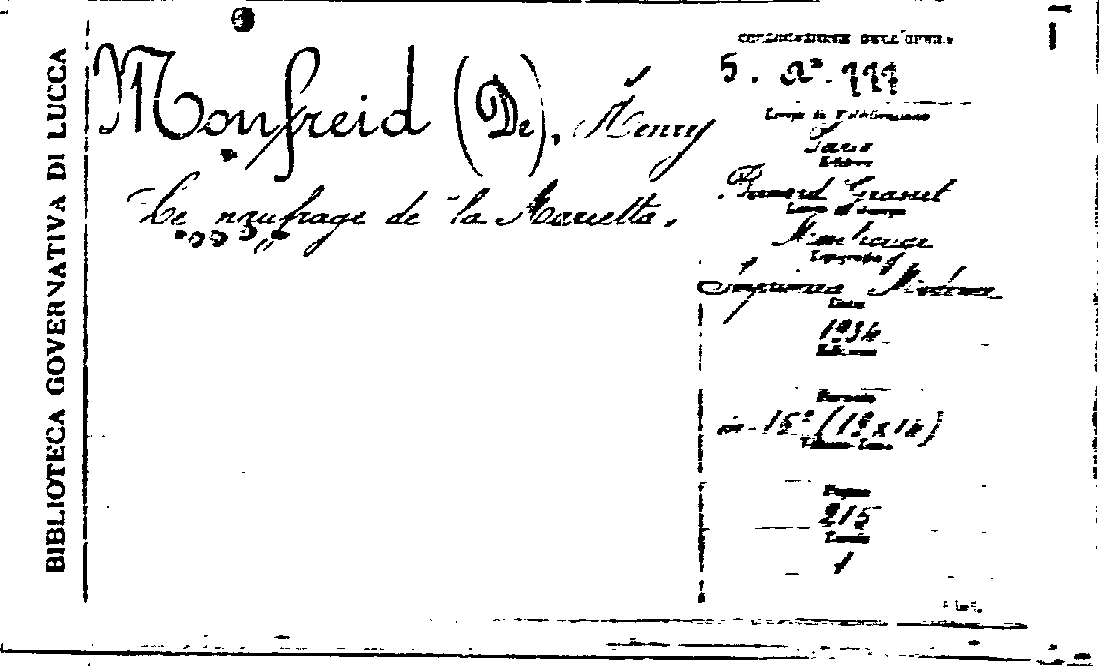 BIBLIOTECA GOVERNATIVA DI LUCCA
Monfreid (De), Henry
Le naufrage de la Marietta.
COLLOCAZIONE DELL'OPERA
5. a². 111
Luogo di Pubblicazione
Paris
Editore
Bernard Grasset
Luogo di stampa
Montrouge
Tipografia
Imprimerie Moderne
Data
1934
Edizione
Formato
in-16° (19x14)
Pagine
215
1